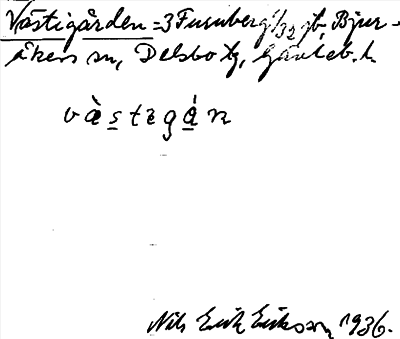 Västigården = 3 Furuberg 1/32 jb, Bjur-
åkers sn, Delsbo tg, Gävleb. l.
vàstɩgán
Nils Erik Erikson, 1936.